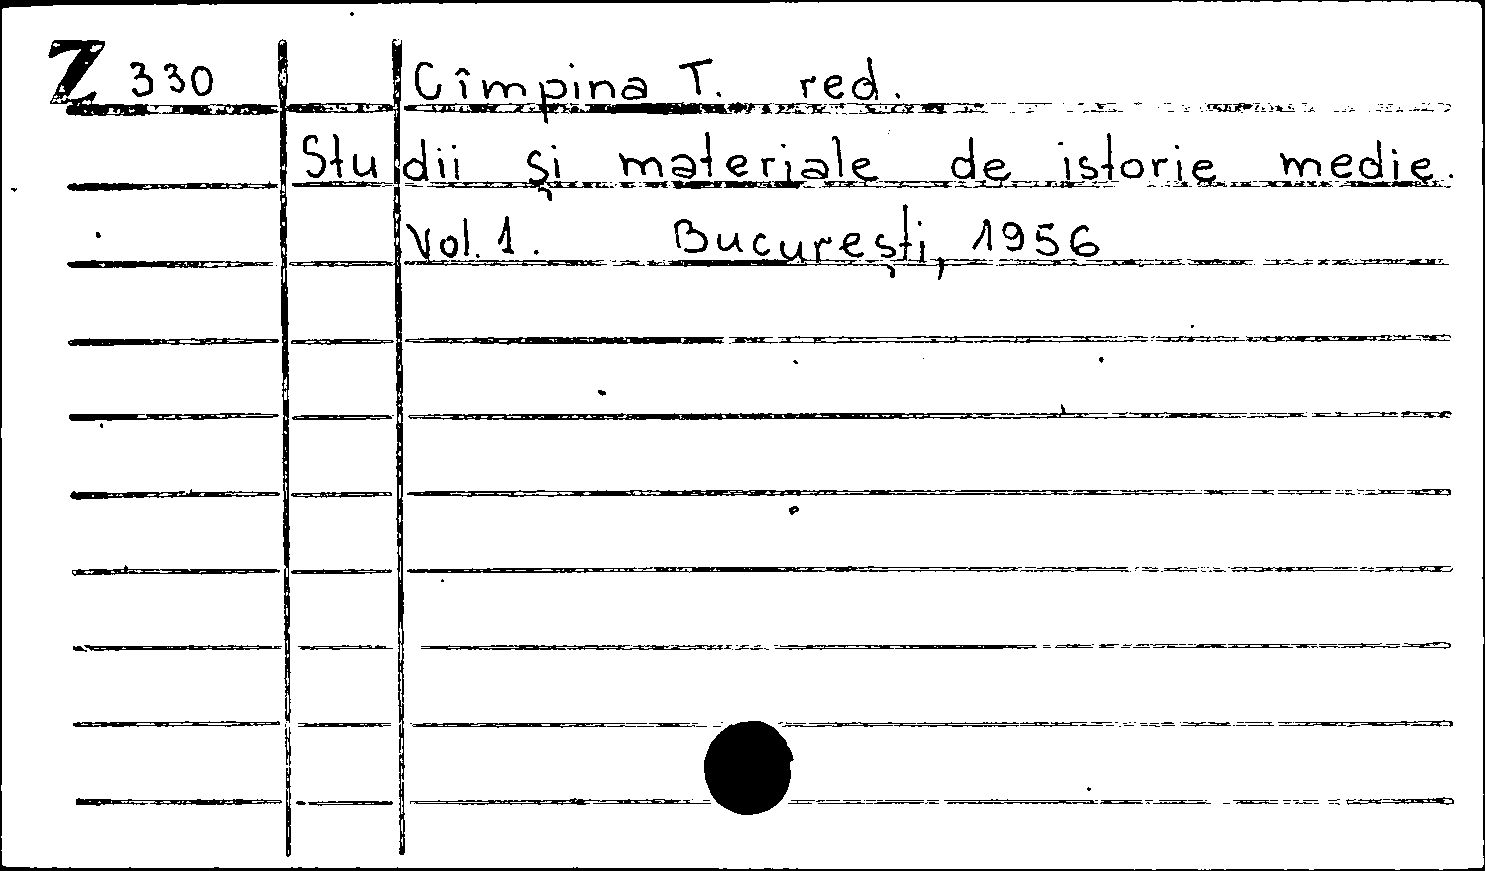 Z 330 Cîmpina T. red.
Studii și materiale de istorie medie.
Vol. 1. București, 1956